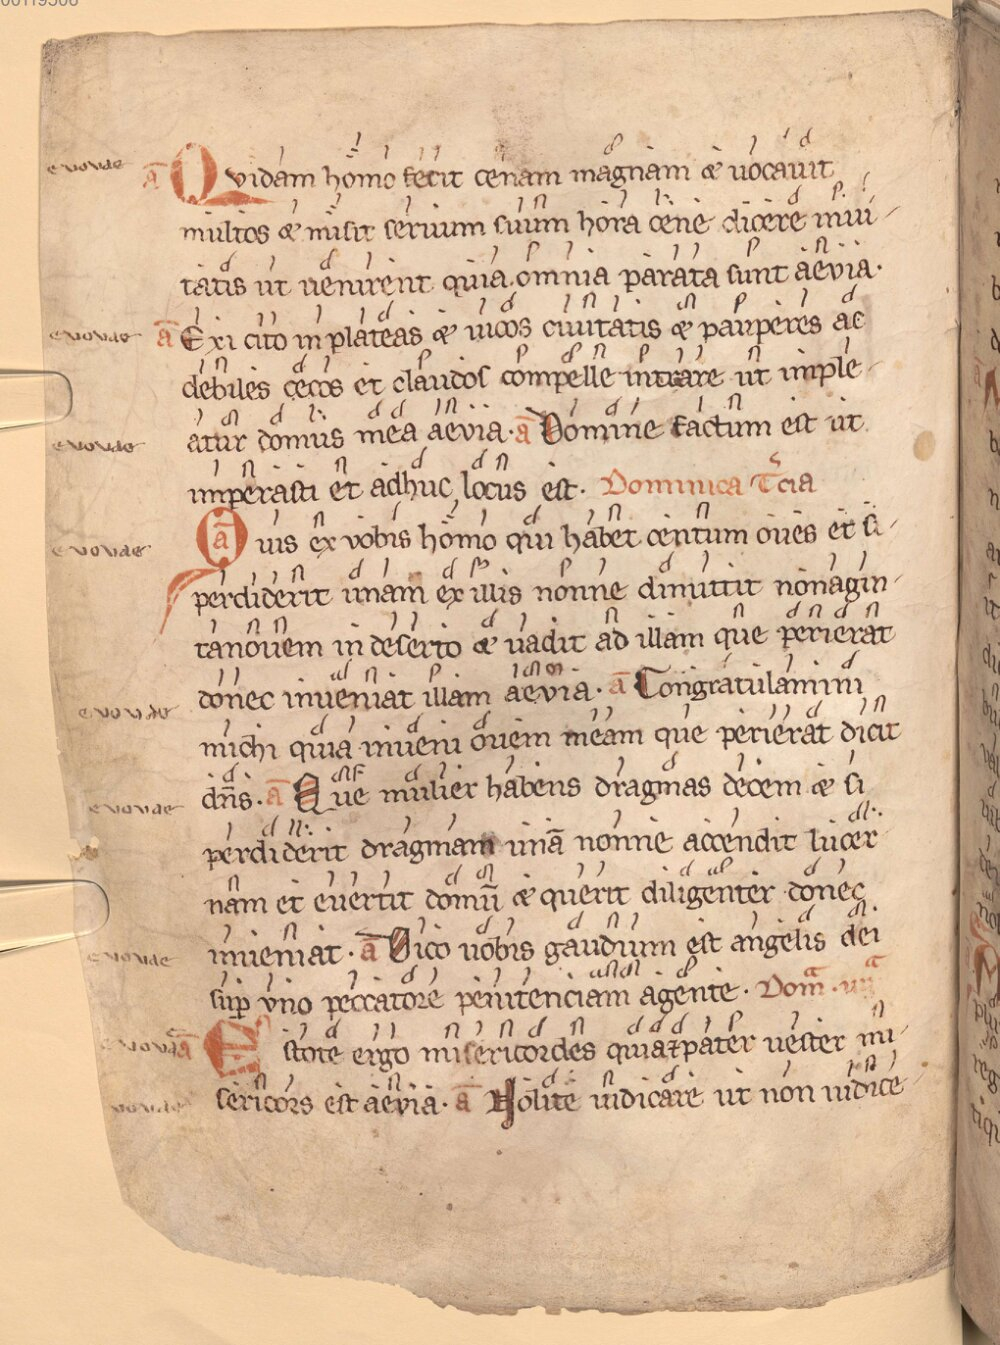 00119506
euouae ā Quidam homo fecit cenam magnam & uocauit
multos & misit seruum suum hora cene dicere inui
tatis ut uenirent quia omnia parata sunt aeuia.
euouae ā Exi cito in plateas & uicos ciuitatis & pauperes ac
debiles cecos et claudos compelle intrare ut imple
euouae atur domus mea aeuia. ā Domine factum est ut
imperasti et adhuc locus est. Dominica Tcia
euouae ā Quis ex vobis homo qui habet centum oues et si
perdiderit unam ex illis nonne dimittit nonagin
tanouem in deserto & uadit ad illam que perierat
euouae donec inueniat illam aeuia. ā Congratulamini
michi quia inueni ouem meam que perierat dicit
euouae dn̄s. ā Que mulier habens dragmas decem & si
perdiderit dragmam unā nonne accendit lucer
nam et euertit domū & querit diligenter donec
euouae inueniat. ā Dico uobis gaudium est angelis dei
sup vno peccatore penitenciam agente. Dom̄.
euouae ā Estote ergo misericordes quia & pater uester mi
euouae sericors est aeuia. ā Nolite iudicare ut non iudice